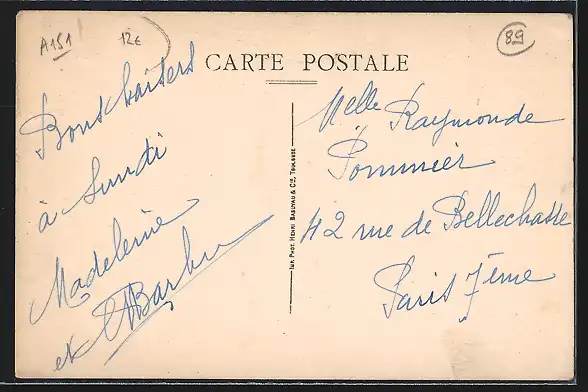 A151 12€
89
CARTE POSTALE
Bons baisers
à lundi
Madeleine
et
Melle Raymonde
Pommier
42 rue de Bellechasse
Paris 7ème
Imp. Phot. Henri Basuyau & Cie, Toulouse